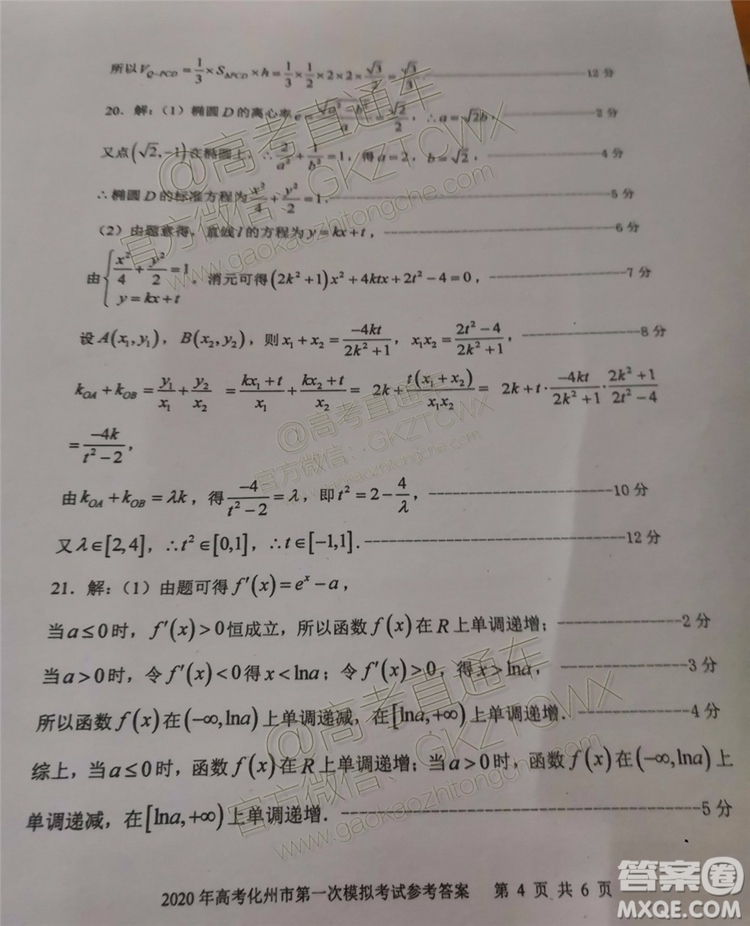 所以V_{Q-PCD}=\frac{1}{3}×S_{ΔPCD}×h=\frac{1}{3}×\frac{1}{2}×2×2×\frac{\sqrt{3}}{2}=\frac{\sqrt{3}}{3}.------12分
20. 解：(1) 椭圆D的离心率e=\frac{\sqrt{a^2-b^2}}{a}=\frac{\sqrt{2}}{2}，∴a=\sqrt{2}b，------2分
又点(\sqrt{2},-1)在椭圆上，∴\frac{2}{a^2}+\frac{1}{b^2}=1，得a=2，b=\sqrt{2}，------4分
∴椭圆D的标准方程为\frac{x^2}{4}+\frac{y^2}{2}=1.------5分
(2) 由题意得，直线l的方程为y=kx+t，------6分
由\begin{cases}\frac{x^2}{4}+\frac{y^2}{2}=1\\y=kx+t\end{cases}，消元可得(2k^2+1)x^2+4ktx+2t^2-4=0，------7分
设A(x_1,y_1)，B(x_2,y_2)，则x_1+x_2=\frac{-4kt}{2k^2+1}，x_1x_2=\frac{2t^2-4}{2k^2+1}，------8分
k_{OA}+k_{OB}=\frac{y_1}{x_1}+\frac{y_2}{x_2}=\frac{kx_1+t}{x_1}+\frac{kx_2+t}{x_2}=2k+\frac{t(x_1+x_2)}{x_1x_2}=2k+t·\frac{-4kt}{2k^2+1}·\frac{2k^2+1}{2t^2-4}
=\frac{-4k}{t^2-2}，
由k_{OA}+k_{OB}=λk，得\frac{-4}{t^2-2}=λ，即t^2=2-\frac{4}{λ}，------10分
又λ∈[2,4]，∴t^2∈[0,1]，∴t∈[-1,1].------12分
21. 解：(1) 由题可得f'(x)=e^x-a，
当a≤0时，f'(x)>0恒成立，所以函数f(x)在R上单调递增；------2分
当a>0时，令f'(x)<0得x<lna；令f'(x)>0，得x>lna，------3分
所以函数f(x)在(-∞,lna)上单调递减，在[lna,+∞)上单调递增.------4分
综上，当a≤0时，函数f(x)在R上单调递增；当a>0时，函数f(x)在(-∞,lna)上
单调递减，在[lna,+∞)上单调递增.------5分
2020年高考化州市第一次模拟考试参考答案 第 4 页 共 6 页
@高考直通车
官方微信：GKZTCWX
www.gaokaozhitongche.com
@高考直通车
官方微信：GKZTCWX
@高考直通车
官方微信：GKZTCWX
www.gaokaozhitongche.com
答案圈
MXQE.COM